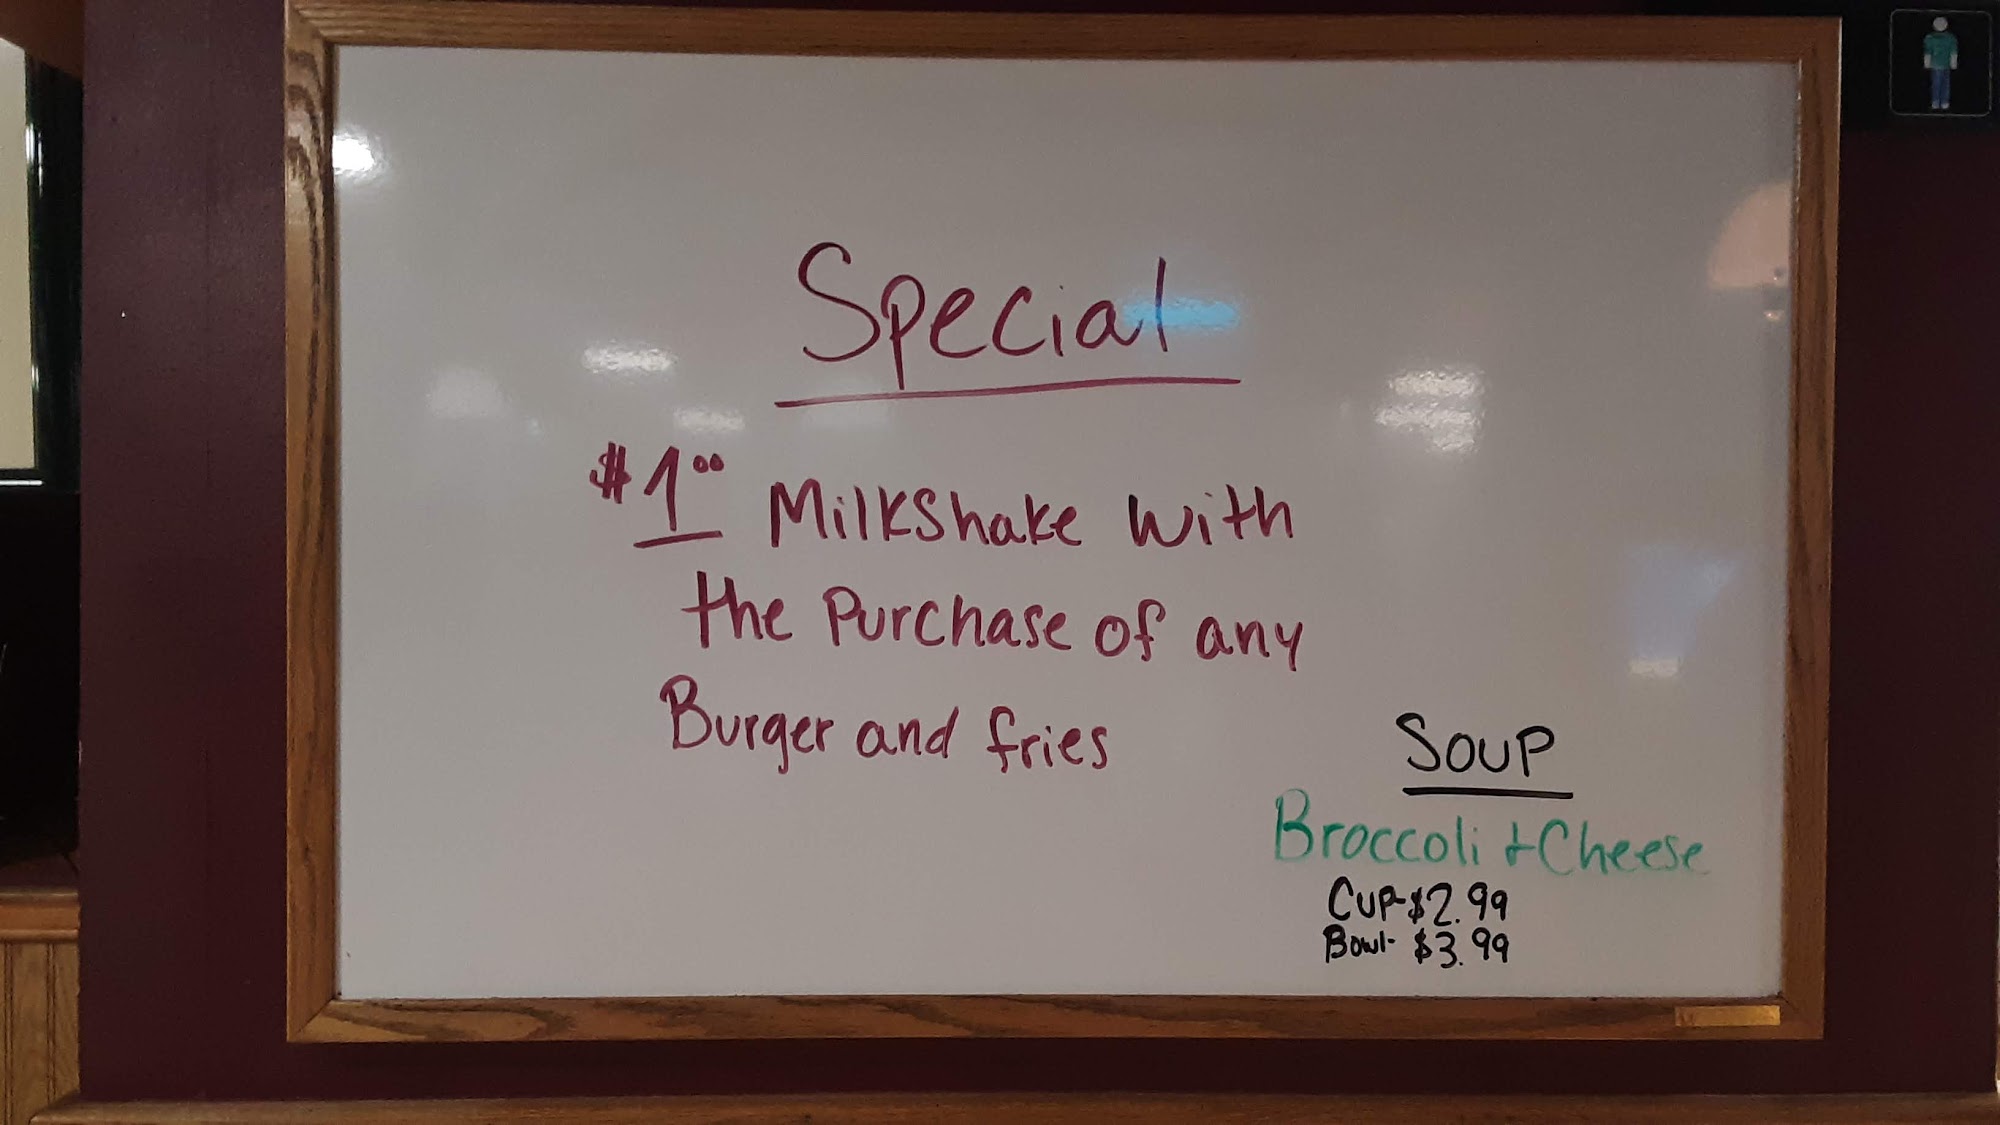 Special
$1.00 Milkshake with
the Purchase of any
Burger and fries
Soup
Broccoli + Cheese
Cup-$2.99
Bowl- $3.99